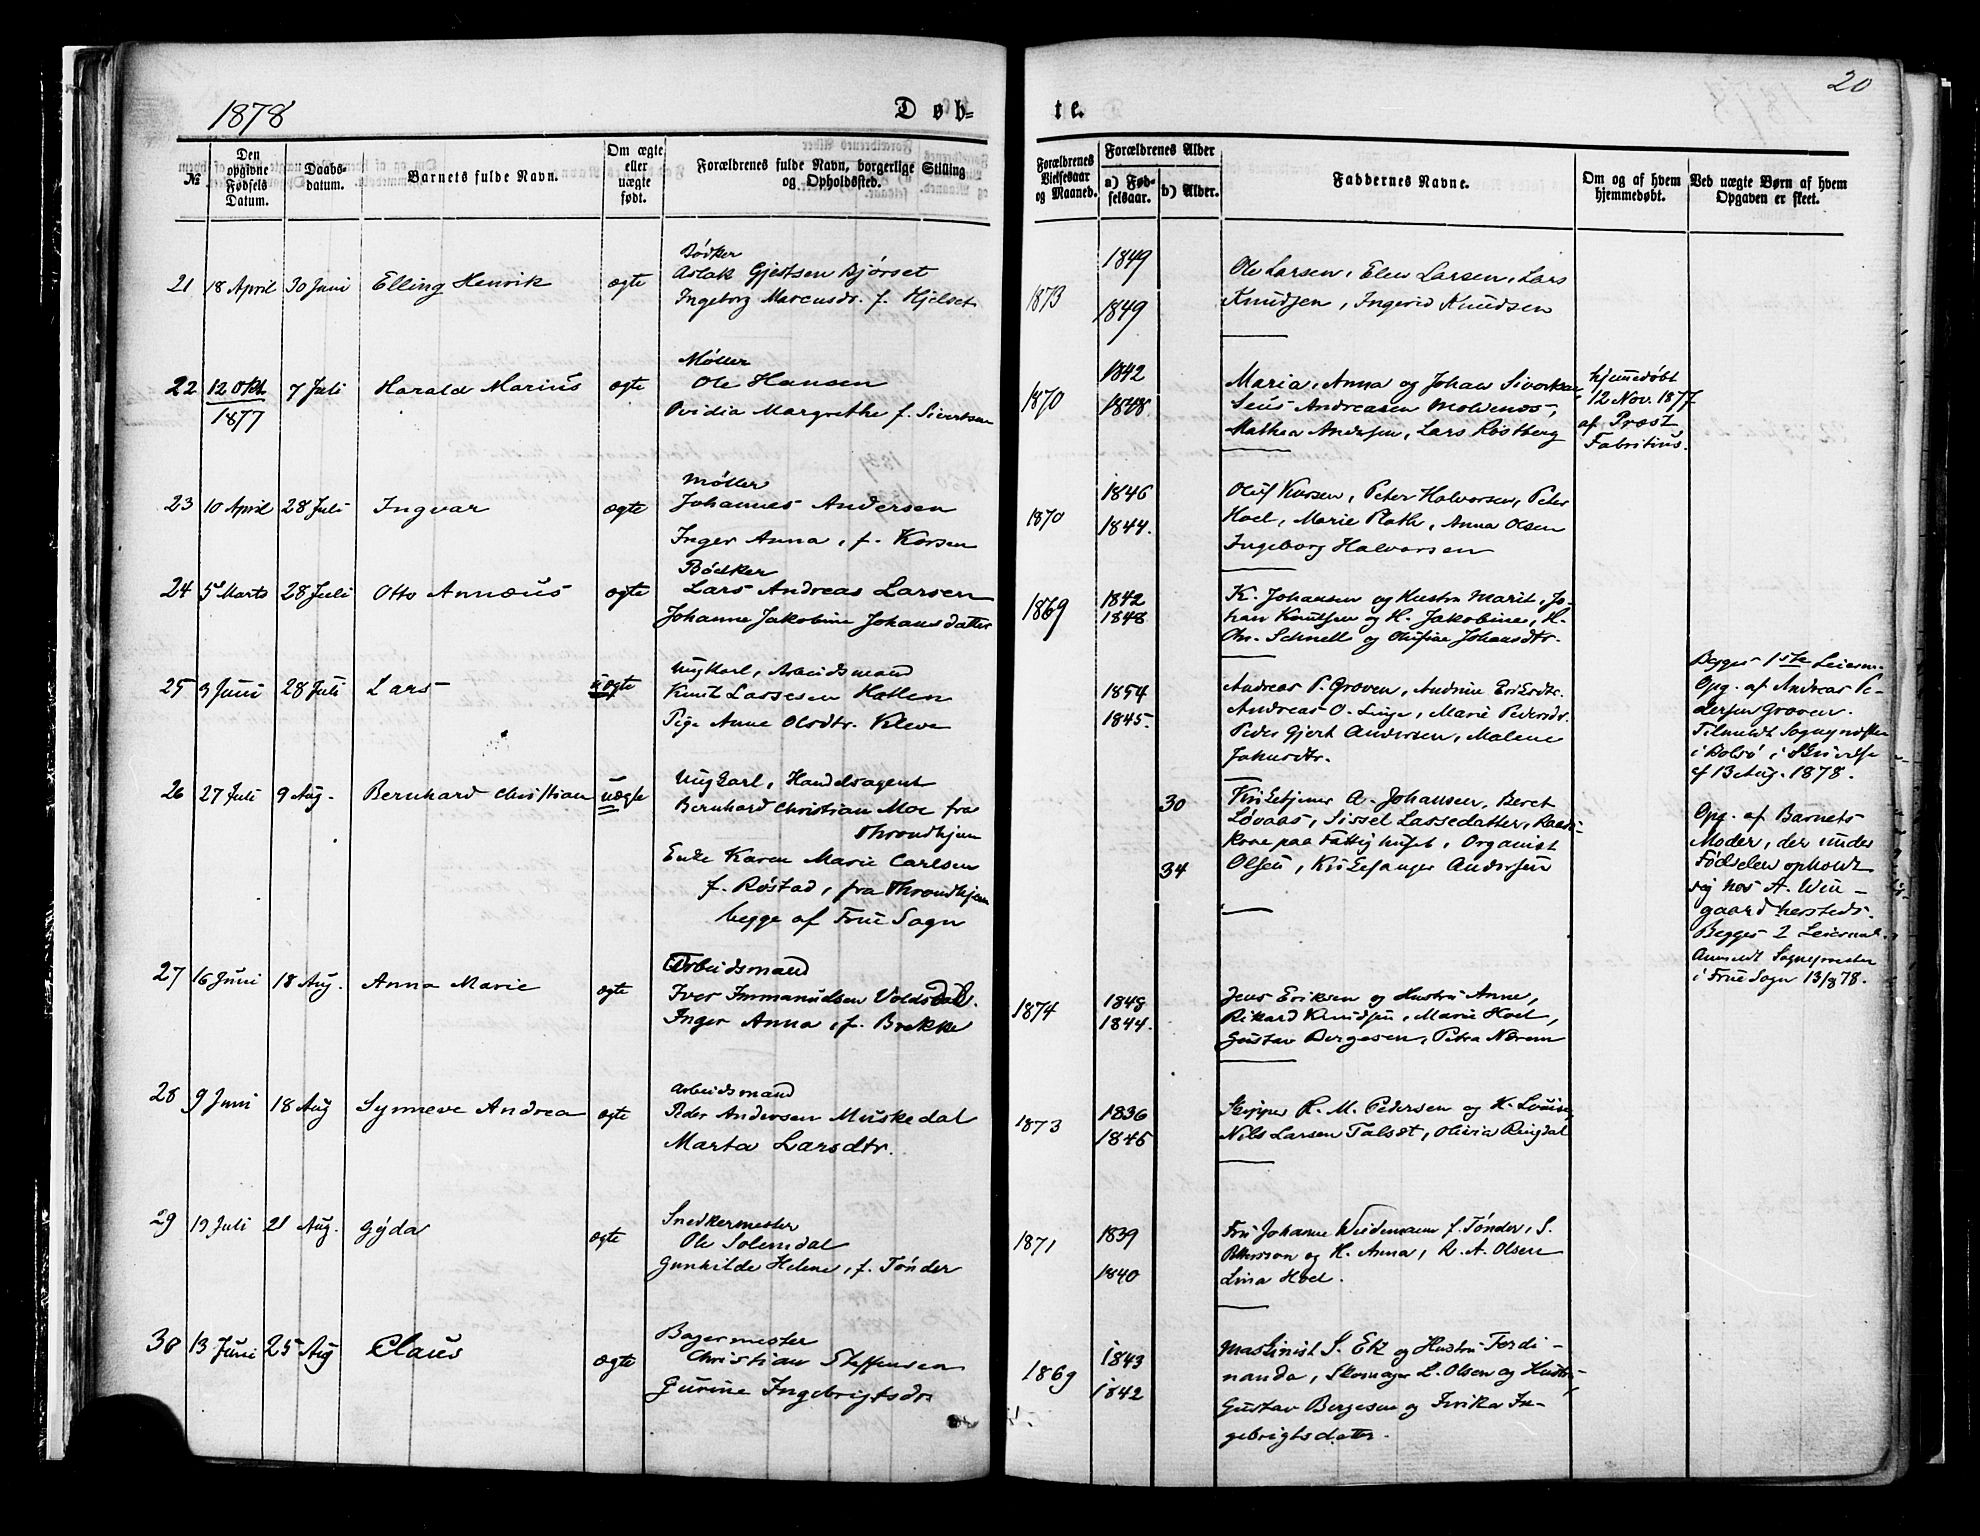 1878
Døb-
te.
20
№
Den opgivne Fødsels Datum.
Daabs-datum.
Barnets fulde Navn.
Om ægte eller uægte født.
Forældrenes fulde Navn, borgerlige Stilling og Opholdssted.
Forældrenes Vielsesaar og Maaned.
Forældrenes Alder
a) Fødselsaar.
b) Alder.
Faddernes Navne.
Om og af hvem hjemmedøbt.
Ved uægte Børn af hvem Opgaven er skeet.
21 18 April 30 Juni Elling Henrik ægte
Bødker
Aslak Gjertsen Bjørset
Ingeborg Marcusdr. f. Hjelset
1873
1849
1849
Ole Larsen, Elen Larsen, Lars
Knudsen, Ingerid Knudsen
22 12 Okt. 1877 7 Juli Harald Marius ægte
Møller
Ole Hansen
Ovidia Margrethe f. Sivertsen
1870
1842
1848
Maria, Anna og Johan Sivertsen,
Andreasen Moldenæs,
Mathea Andersen, Lars Røstberg
hjemedøbt
12 Nov. 1877
af Provst
Fabritius.
23 10 April 28 Juli Ingvar ægte
Møller
Johannes Andersen
Inger Anna, f. Korsen
1870
1846
1844.
Oluf Korsen, Peter Halvorsen, Peter
Hoel, Marie Plath, Anna Olsen
Ingeborg Halvorsen
24 5 Marts 28 Juli Otto Annæus ægte
Bødker
Lars Andreas Larsen
Johanne Jakobine Johansdatter
1869
1842
1848
K. Johansen og Hustru Marit, Jo-
han Knutsen og H. Jakobine, H.
Chr. Schnell og Olufine Johansdtr.
25 3 Juni 28 Juli Lars uægte
Ungkarl, Arbeidsmand
Knut Lassesen Hatlen
Pige Anne Olsdtr. Kleve
1854
1845.
Andreas P. Groven, Andrine Eriksdtr.
Andreas O. Linge, Marie Pedersdr.
Peder Gjert Andersen, Malene
Begges 1ste Leierm.
Opg. af Andreas Pe-
dersen Groven.
Tilmeldt Sognepresten
i Bolsø i Skrivelse
af 13 Aug. 1878.
26 27 Juli 9 Aug. Bernhard Christian uægte
Ungkarl, Handelsagent
Bernhard Christian Moe fra
Throndhjem
Enke Karen Marie Carlsen
f. Røstad, fra Throndhjem
begge af Frue Sogn
30
34
Kirketjener A. Johansen, Beret
Løvaas, Sissel Lassedatter,
kone paa Fattighuset, Organist
Olsen, Kirkesanger Andersen
Opg. af Barnets
Moder, der under
Fødselen opholdt
sig hos A. Win-
gaard hersteds.
Begges 2 Leiermal.
Anmeldt Sognepresten
i Frue Sogn 13/8 78.
27 16 Juni 18 Aug. Anna Marie ægte
Arbeidsmand
Iver Immanuelsen Voldsdal.
Inger Anna, f. Brekke
1874
1848
1844.
Jens Eriksen og Hustru Anne,
Rikard Knudsen, Marie Hoel,
Gustav Bergesen, Petra Nerem
28 9 Juni 18 Aug Synneve Andrea ægte
Arbeidsmand
Peder Andersen Muskedal
Marta Larsdtr.
1873
1836
1845
Skipper P. M. Pedersen og H. Louise,
Nils Larsen Talset, Olivia Ringdal
29 19 Juli 21 Aug. Gyda ægte
Snedkermester
Ole Solemdal
Gunhilde Helene, f. Tønder
1871
1839
1840
Fru Johanne Weidemann f. Tønder, S.
Pettersson og H. Anna, R. A. Olsen
Lina Hoel.
30 13 Juni 25 Aug Claus ægte
Bagermester
Christian Steffensen
Gurine Ingebrigtsdr.
1869
1843
1842
Maskinist S. Ek og Hustru Ferdi-
nanda, Skomager L. Olsen og Hustru,
Gustav Bergesen og Fredrika In-
gebrigtsdatter.